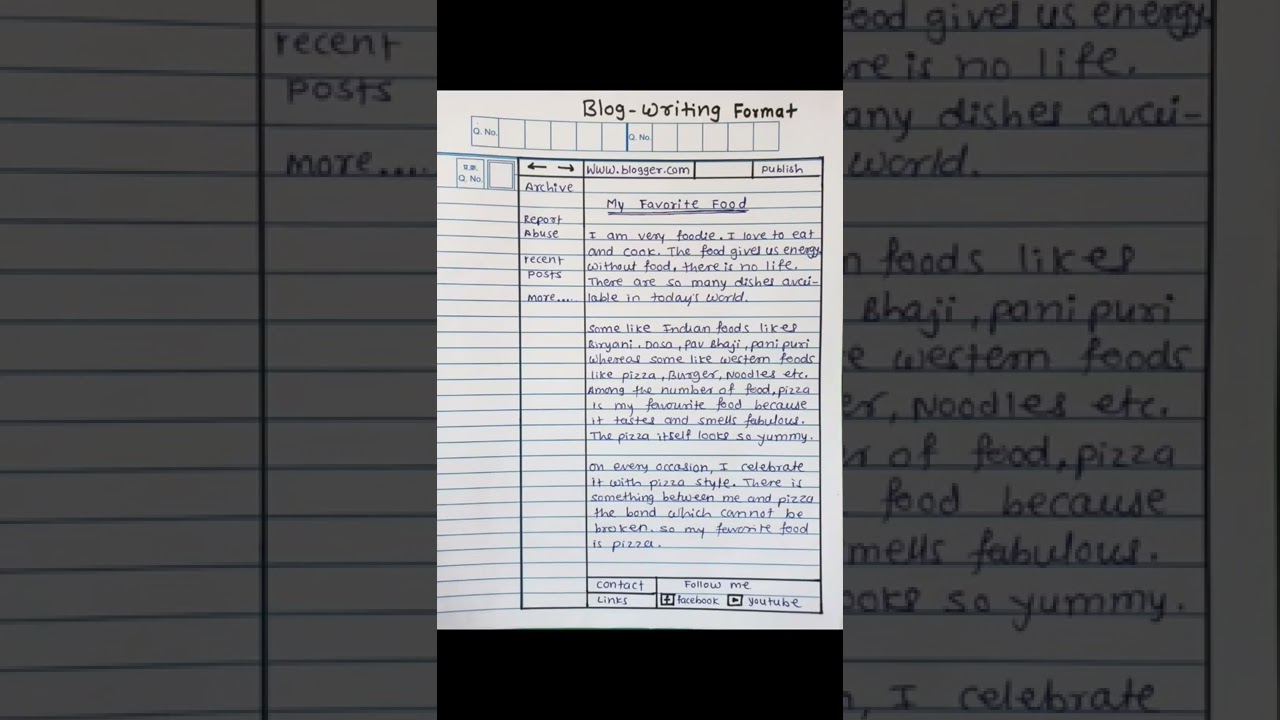 Blog-Writing Format
Q. No. Q. No.
प्र.क्र.
Q. No.
← → Www.blogger.com publish
Archive
Report
Abuse
recent
posts
more.....
My Favorite Food
I am very foodie. I love to eat
and cook. The food gives us energy
without food, there is no life.
There are so many dishes avai-
lable in today's world.
Some like Indian foods likes
Biryani. Dosa, Pav Bhaji, pani puri
whereas some like western foods
like pizza, Burger, Noodles etc.
Among the number of food, pizza
is my favourite food because
it tastes and smells fabulous.
The pizza itself looks so yummy.
on every occasion, I celebrate
it with pizza style. There is
something between me and pizza
the bond which cannot be
broken. so my favorite food
is pizza.
contact Follow me
Links facebook youtube
recent
posts
more....
food gives us energy
re is no life.
any dishes avai-
world.
n foods likes
Bhaji, pani puri
e western foods
er, Noodles etc.
r of food, pizza
food because
mells fabulous.
ooks so yummy.
n, I celebrate